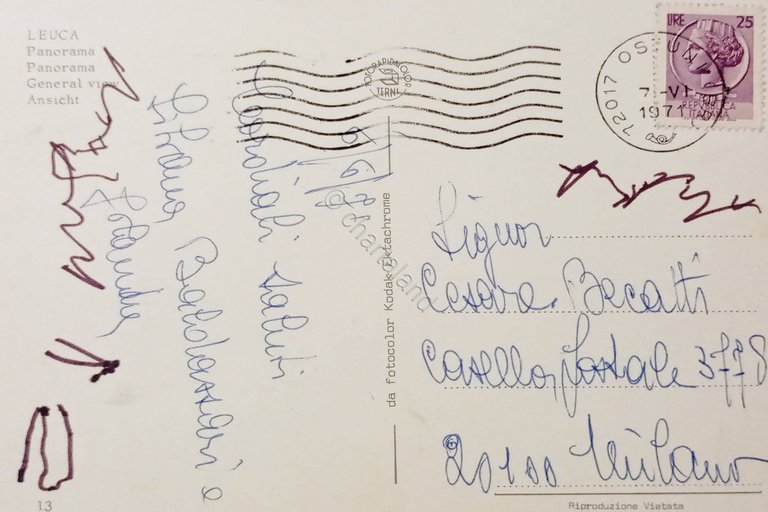 LEUCA
Panorama
Panorama
General view
Ansicht
LIRE 25
REPUBBLICA
ITALIANA
72017 OSTUNI
7-VI
1971
FOTORAPIDACOLOR
TERNI
Cordiali saluti
Baldassari e
da fotocolor Kodak Ektachrome
Signor
Cesare Becatti
Casella Postale 3778
20100 Milano
13
Riproduzione Vietata